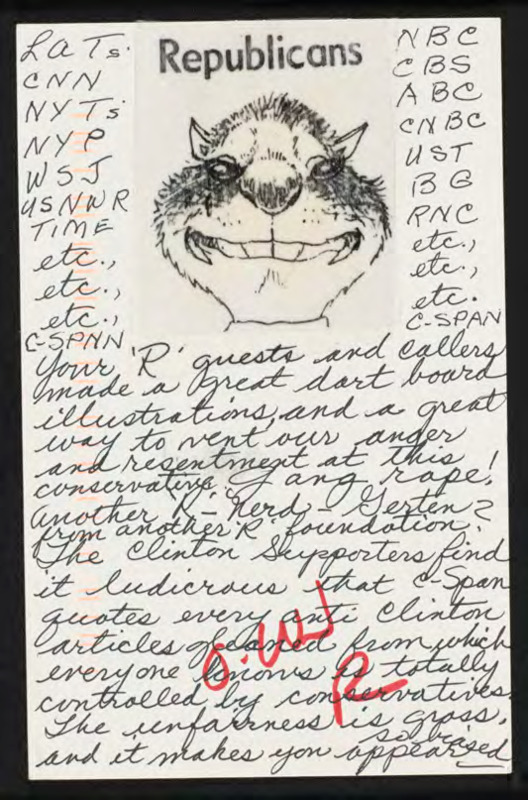 LATs.
CNN
NYTs
NYP
WSJ
USNWR
TIME
etc.,
etc.,
etc.,
C-SPNN
Republicans
NBC
CBS
ABC
CNBC
UST
BG
RNC
etc.,
etc.,
etc.
C-SPAN
Your 'R' guests and callers
made a great dart board
illustrations, and a great
way to vent our anger
and resentment at this
conservative gang rape!
another 'R'- "nerd - Gerten?
from another 'R' foundation.
The Clinton Supporters find
it ludicrous that C-Span
quotes every anti Clinton
articles gleaned from which
everyone knows is totally
controlled by conservatives.
The unfairness is gross,
and it makes you appear so biased
R